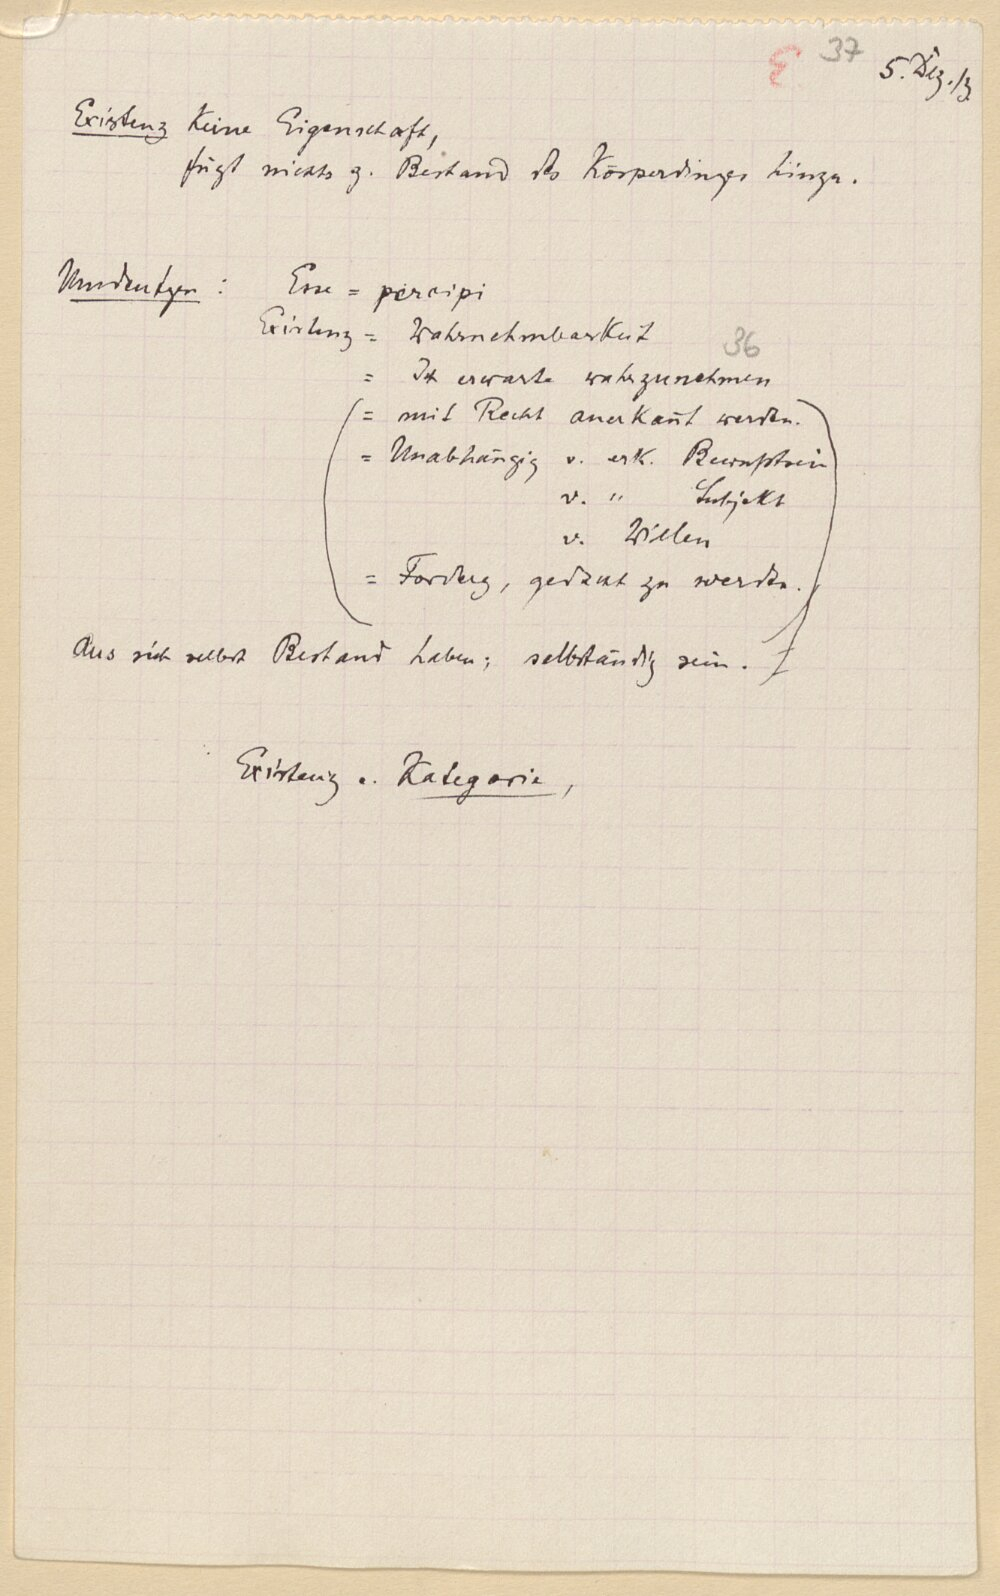 E 37 5. Dez. 13
Existenz keine Eigenschaft,
fügt nichts z. Bestand des Körperdinges hinzu.
Umdeutgen : Esse = percipi
Existenz = Wahrnehmbarkeit
36
= Ich erwarte wahrzunehmen
= mit Recht anerkannt werden.
= Unabhängig v. erk. Bewußtsein
v. " Subjekt
v. Willen
= Forderg, gedacht zu werden.
Aus sich selbst Bestand haben; selbständig sein.
Existenz e. Kategorie,